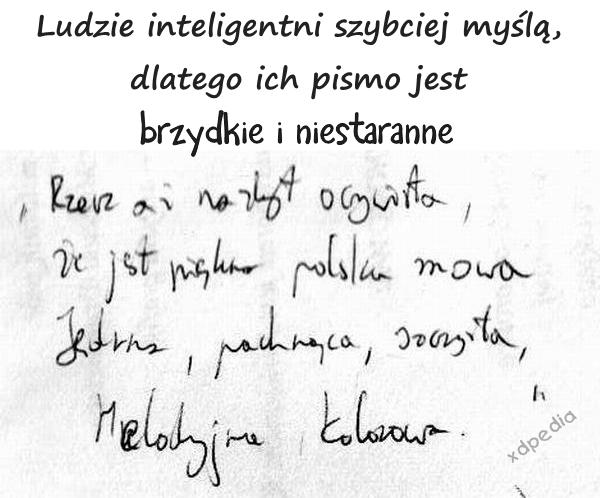 Ludzie inteligentni szybciej myślą,
dlatego ich pismo jest
brzydkie i niestaranne
„Rzecz aż nazbyt oczywista,
że jest piękna polska mowa
Jędrna, pachnąca, soczysta,
Melodyjna, kolorowa."
xdpedia